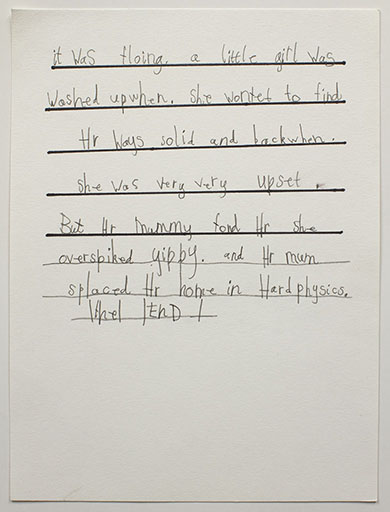 it was floing. a little girl was
washed upwhen. she wontet to find
Hr ways solid and backwhen.
she was very very upset.
But Hr mummy fond Hr she
overspiked yippy. and Hr mum
splaced Hr home in Hardphysics.
The END !